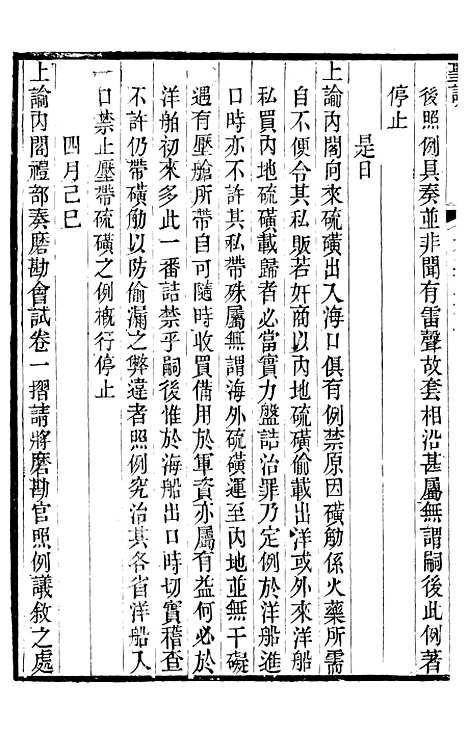 後照例具奏並非聞有雷聲故套相沿甚屬無謂嗣後此例著
停止
是日
上諭內閣向來硫磺出入海口俱有例禁原因磺觔係火藥所需
自不便令其私販若奸商以內地硫磺偷載出洋或外來洋船
私買內地硫磺載歸者必當實力盤詰治罪乃定例於洋船進
口時亦不許其私帶殊屬無謂海外硫磺運至內地並無干礙
遇有壓艙所帶自可隨時收買備用於軍資亦屬有益何必於
洋舶初來多此一番詰禁乎嗣後惟於海船出口時切實稽查
不許仍帶磺觔以防偷漏之弊違者照例究治其各省洋船入
口禁止壓帶硫磺之例概行停止
四月己巳
上諭內閣禮部奏磨勘會試卷一摺請將磨勘官照例議敘之處